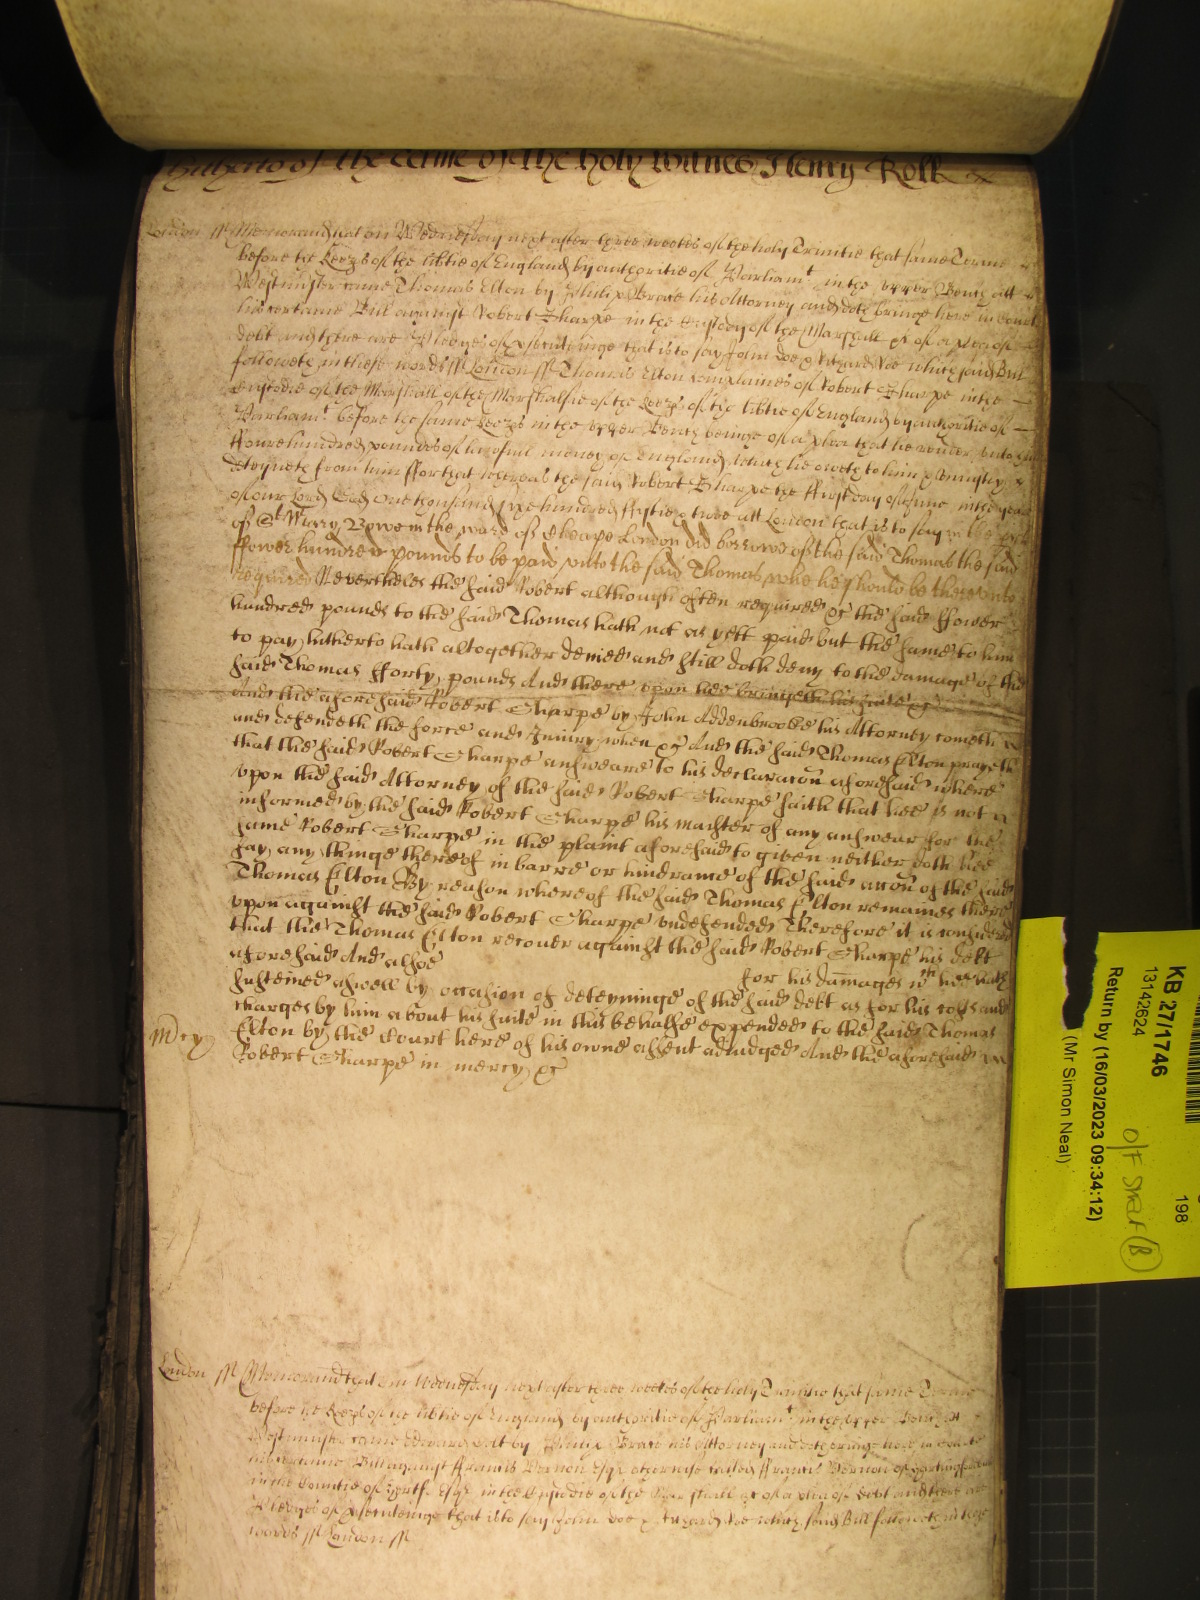 hitherto of the terme of the holy Trinitie Henry Rolle
London ss Memorand that on Wednesday next after three weekes of the holy Trinitie that same Terme
before the Keepers of the libtie of England by authoritie of Parliamt in the upper Bench att
Westminster came Thomas Elton by Philip his Attorney and doth bringe here in Court
his certaine Bill against Robert Sharpe in the Custody of the Marshall &c of a plea of
debt and there are Pledges of psecutinge that is to say John Doe & Richard Roe which said Bill
followeth in these words ss London ss Thomas Elton complaines of Robert Sharpe in the
Custodie of the Marshall of the Marshalsie of the Keeps of the libtie of England by authoritie of
Parliamt before the same Keeps in the upper Bench beinge of a plea that he render unto him
ffoure hundred pounds of lawfull money of England which he oweth to him & uniustly
deteyneth from him ffor that whereas the said Robert Sharpe the ffirst day of June in the yeare
of our Lord God one thousand six hundred ffiftie & twoe att London that is to say in the
of St Mary Bowe in the ward of Cheape London did borrowe of the said Thomas the said
ffower hundred pounds to be paid unto the said Thomas when he should be thereunto
required Nevertheles the said Robert although often required &c the said ffower
hundred pounds to the said Thomas hath not as yett paid but the same to him
to pay hitherto hath altogether denied and still doth deny to the damage of the
said Thomas fforty pounds And there upon hee bringeth his suite &c
And the aforesaid Robert Sharpe by John Addenbrooke his Attorney cometh
and defendeth the force and Iniury when &c And the said Thomas Elton prayeth
that the said Robert Sharpe answeare to his declaracon aforesaid where
upon the said Attorney of the said Robert Sharpe saith that hee is not
informed by the said Robert Sharpe his master of any answear for the
same Robert Sharpe in the plaint aforesaid to given neither doth hee
say any thinge thereof in barre or hindrance of the said accon of the said
Thomas Elton By reason whereof the said Thomas Elton remaines there
upon against the said Robert Sharpe undefended Therefore it is considered
that the Thomas Elton recover against the said Robert Sharpe his debt
aforesaid And alsoe for his damages wch hee hath
susteined aswell by occasion of deteyninge of the said debt as for his costs and
charges by him about his suite in this behalfe expended to the said Thomas
Mercy Elton by the Court here of his owne assent adiudged And the aforesaid
Robert Sharpe in mercy &c
London ss Memorand that on Wednesday next after three weekes of the holy Trinitie that same Terme
before the Keeps of the libtie of England by authoritie of Parliamt in the upper Bench att
Westminster came Edward by his Attorney and doth bringe here in Court
his certaine Bill against ffrancis Vernon Esqr otherwise called ffrancis Vernon of
in the Countie of Hertf Esqr in the Custodie of the Marshall &c of a plea of debt and there are
Pledges of psecutinge that is to say John Doe & Richard Roe which said Bill followeth in these
words ss London ss
KB 27/1746
13142624
Return by (16/03/2023 09:34:12)
(Mr Simon Neal)
198
O/F Street (B)